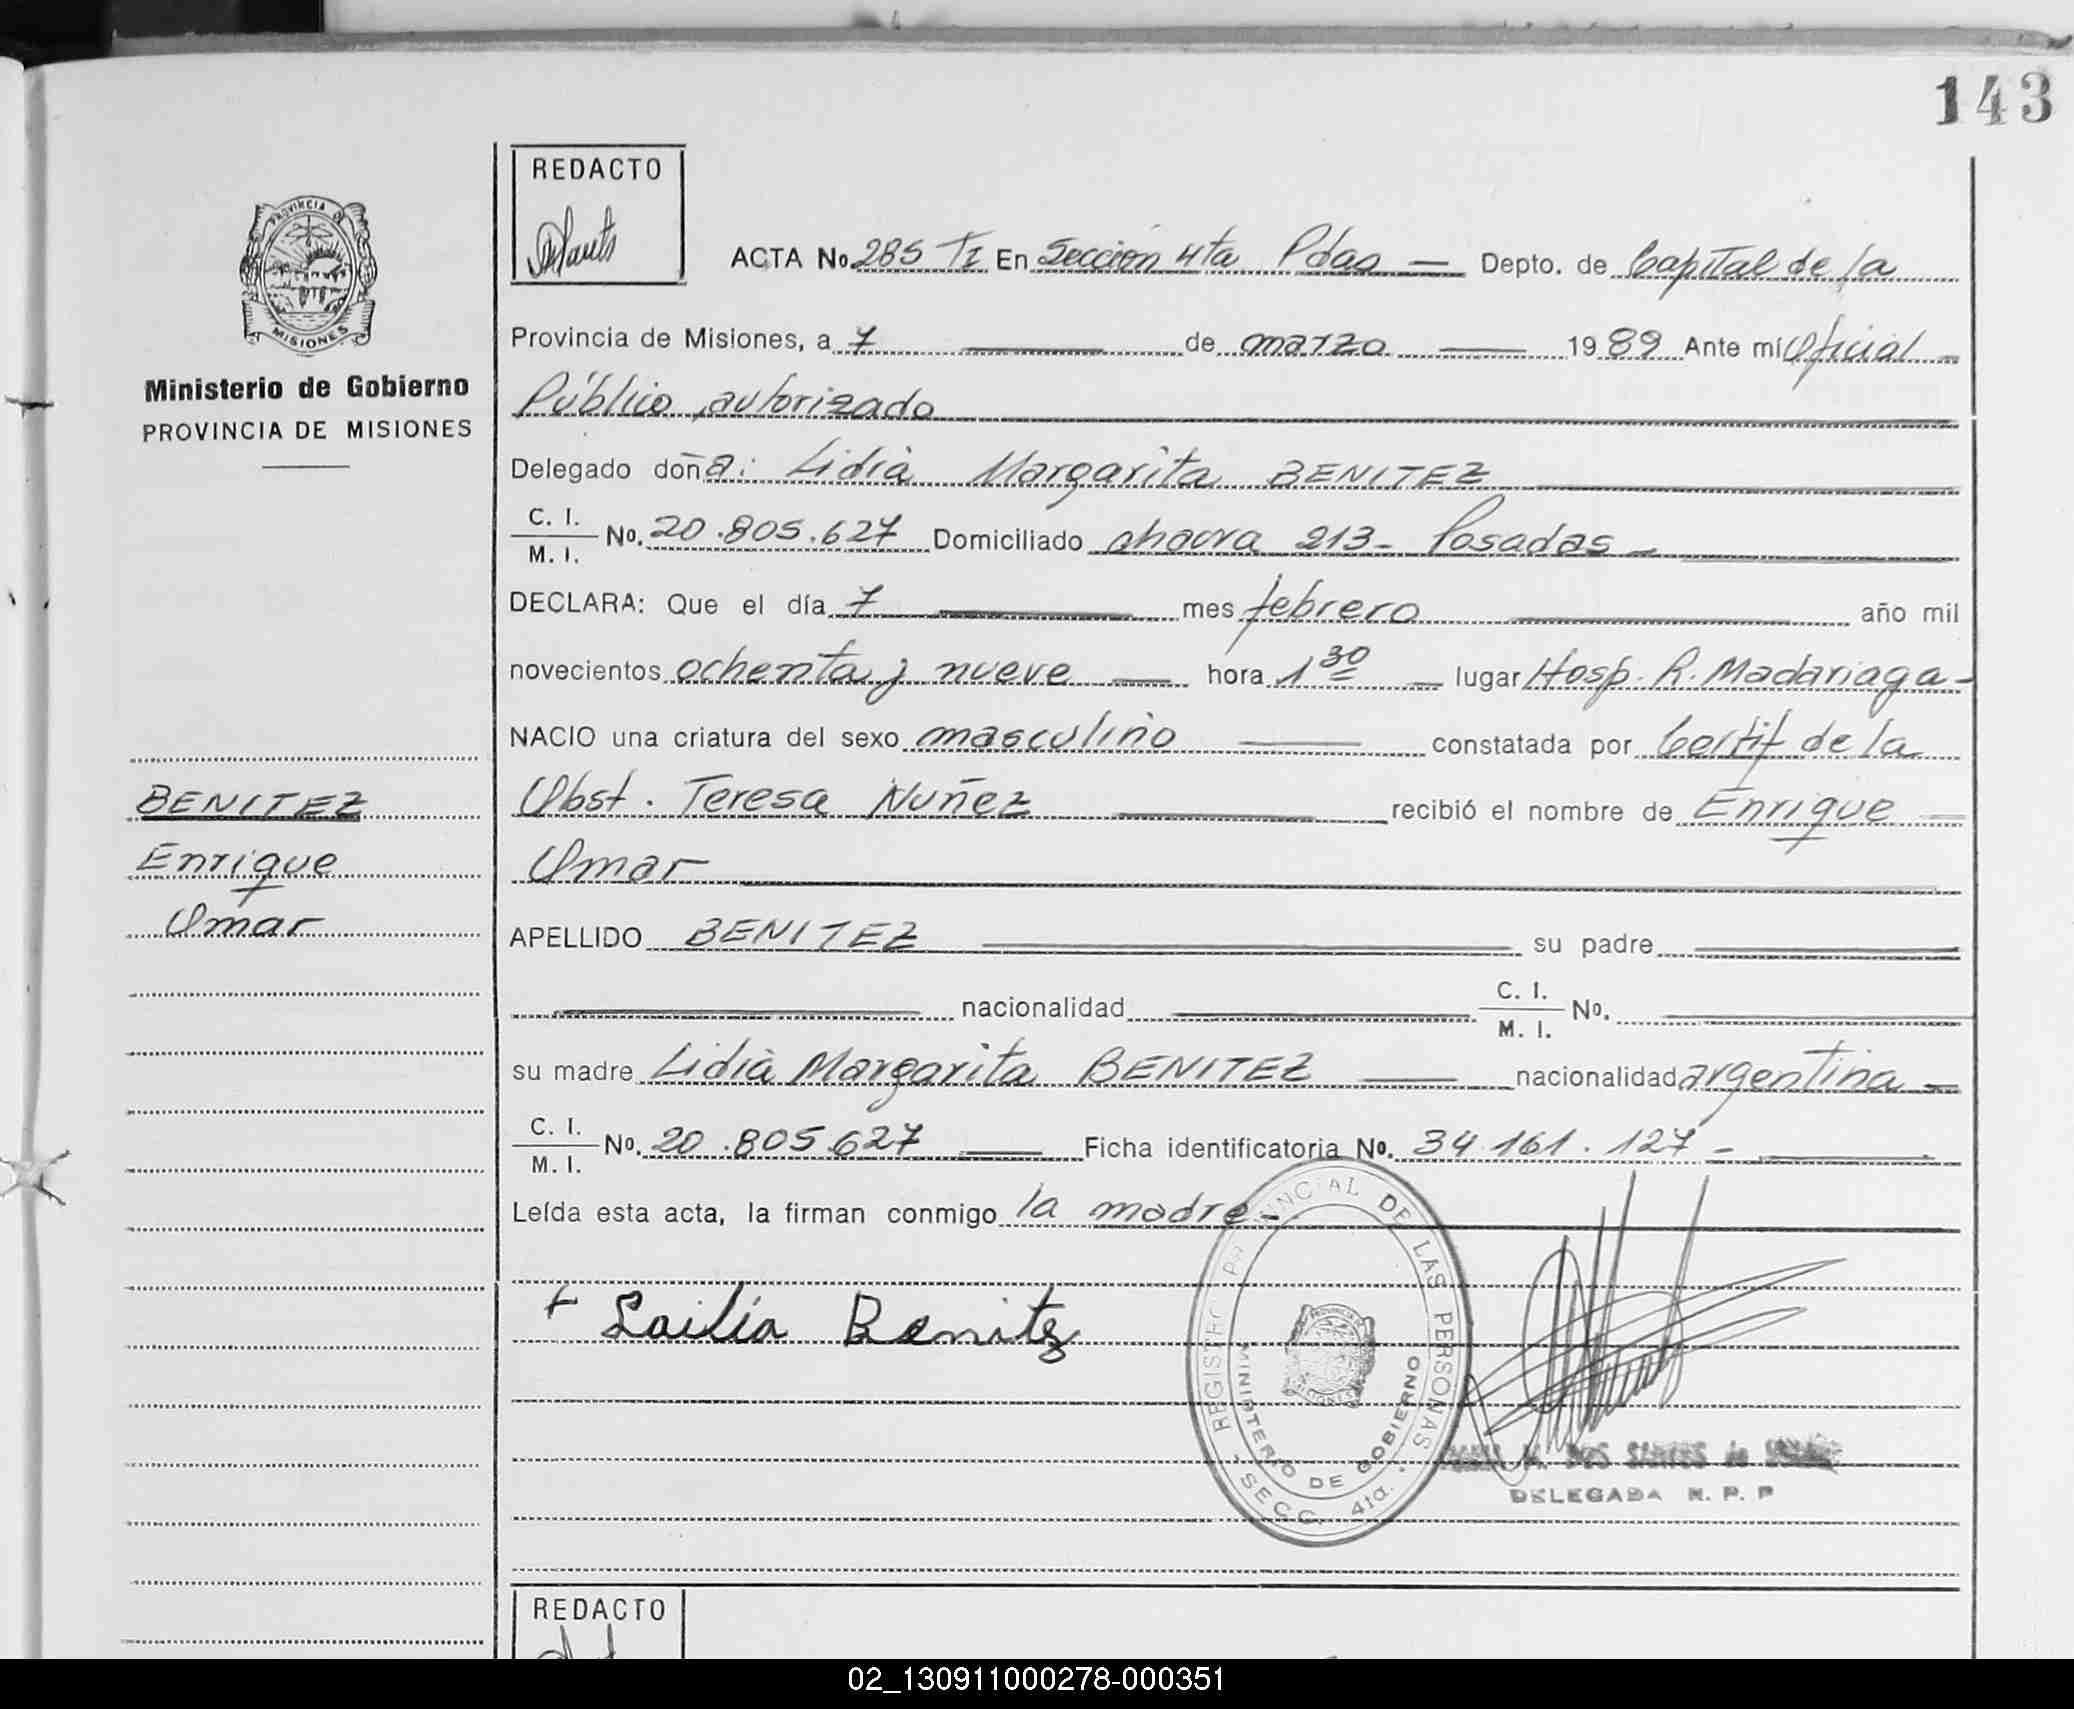 143
REDACTO
ACTA No 285 TI En Sección 4ta Pdas — Depto. de Capital de la
PROVINCIA DE
MISIONES
Provincia de Misiones, a 7 de marzo 1989 Ante mí Oficial
Ministerio de Gobierno
PROVINCIA DE MISIONES
Público autorizado
Delegado doña: Lidia Margarita BENITEZ
C. I.
M. I. No. 20.805.627 Domiciliado chacra 213 - Posadas -
DECLARA: Que el día 7 mes febrero año mil
novecientos ochenta y nueve hora 1 30 lugar Hosp. R. Madariaga -
NACIO una criatura del sexo masculino constatada por Certif de la
BENITEZ
Obst. Teresa Nuñez recibió el nombre de Enrique
Enrique
Omar
Omar
APELLIDO BENITEZ su padre
nacionalidad C. I.
M. I. No.
su madre Lidia Margarita BENITEZ nacionalidad argentina -
C. I.
M. I. No. 20.805.627 Ficha identificatoria No. 34.161.127 -
Leída esta acta, la firman conmigo la madre -
+ Lailia Benitz
REGISTRO PROVINCIAL DE LAS PERSONAS
MINISTERIO DE GOBIERNO
SECC. 4ta.
DOS SANTOS de
DELEGADA R. P. P
REDACTO
02_130911000278-000351